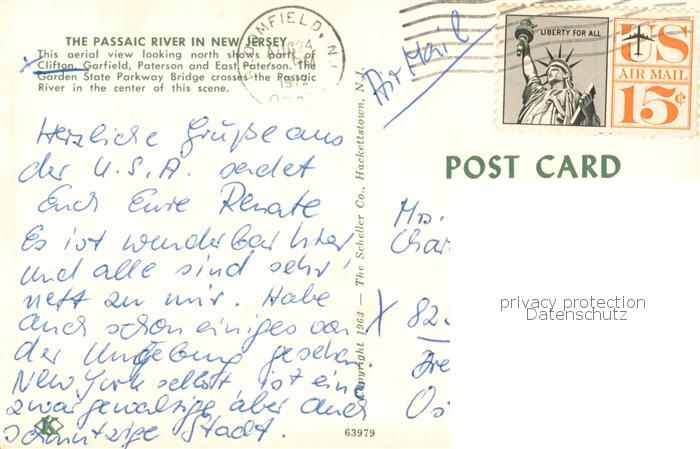 THE PASSAIC RIVER IN NEW JERSEY
This aerial view looking north shows parts of
Clifton, Garfield, Paterson and East Paterson. The
Garden State Parkway Bridge crosses the Passaic
River in the center of this scene.
OMFIELD, N.J.
1972
Air Mail
LIBERTY FOR ALL
US
AIR MAIL
15¢
POST CARD
Herzliche Grüße aus
der U.S.A. sendet
Euch Eure Renate
Es ist wunderbar hier
und alle sind sehr
nett zu mir. Habe
auch schon einiges von
der Umgebung gesehen.
New York selbst, ist eine
zwar gewaltige aber auch
schmutzige Stadt.
Copyright 1963 — The Scheller Co., Hackettstown, N.J.
Mrs.
Char
X 82
Dre
Os
privacy protection
Datenschutz
K
63979